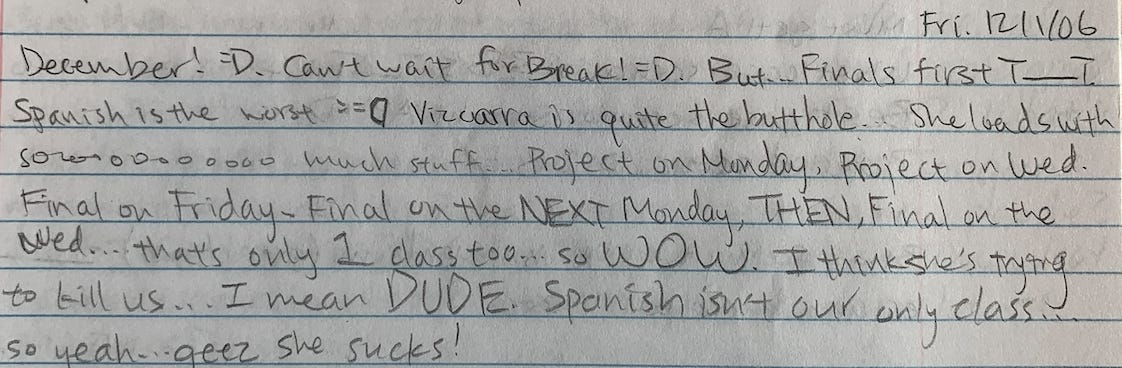 Fri. 12/1/06
December! =D. Can't wait for Break! =D. But... Finals first T__T
Spanish is the worst >=O Vizcarra is quite the butthole... She loads with
sooooooooooo much stuff.... Project on Monday, Project on Wed.
Final on Friday - Final on the NEXT Monday, THEN, Final on the
Wed.... that's only 1 class too.... so WOW. I think she's trying
to kill us... I mean DUDE. Spanish isn't our only class....
so yeah... geez she sucks!